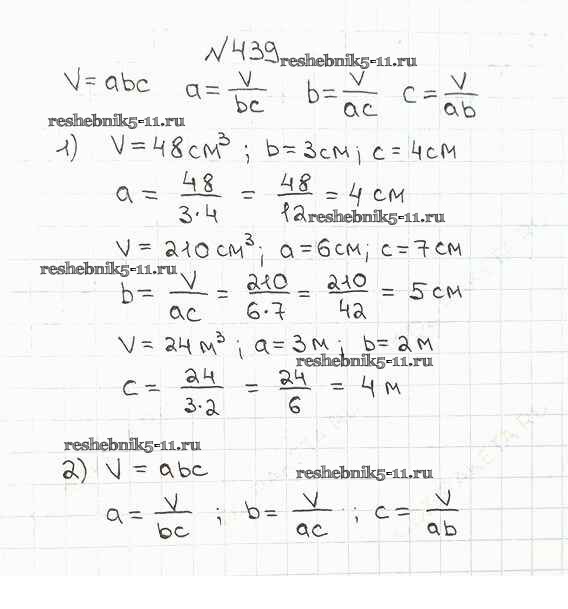 №439 reshebnik5-11.ru
V = abc a = V/bc b = V/ac c = V/ab
reshebnik5-11.ru
1) V = 48 см³ ; b = 3 см ; c = 4 см
a = 48/3·4 = 48/12 = 4 см
reshebnik5-11.ru
V = 210 см³ ; a = 6 см ; c = 7 см
reshebnik5-11.ru
b = V/ac = 210/6·7 = 210/42 = 5 см
V = 24 м³ ; a = 3 м ; b = 2 м
reshebnik5-11.ru
c = 24/3·2 = 24/6 = 4 м
reshebnik5-11.ru
2) V = abc
reshebnik5-11.ru
a = V/bc ; b = V/ac ; c = V/ab